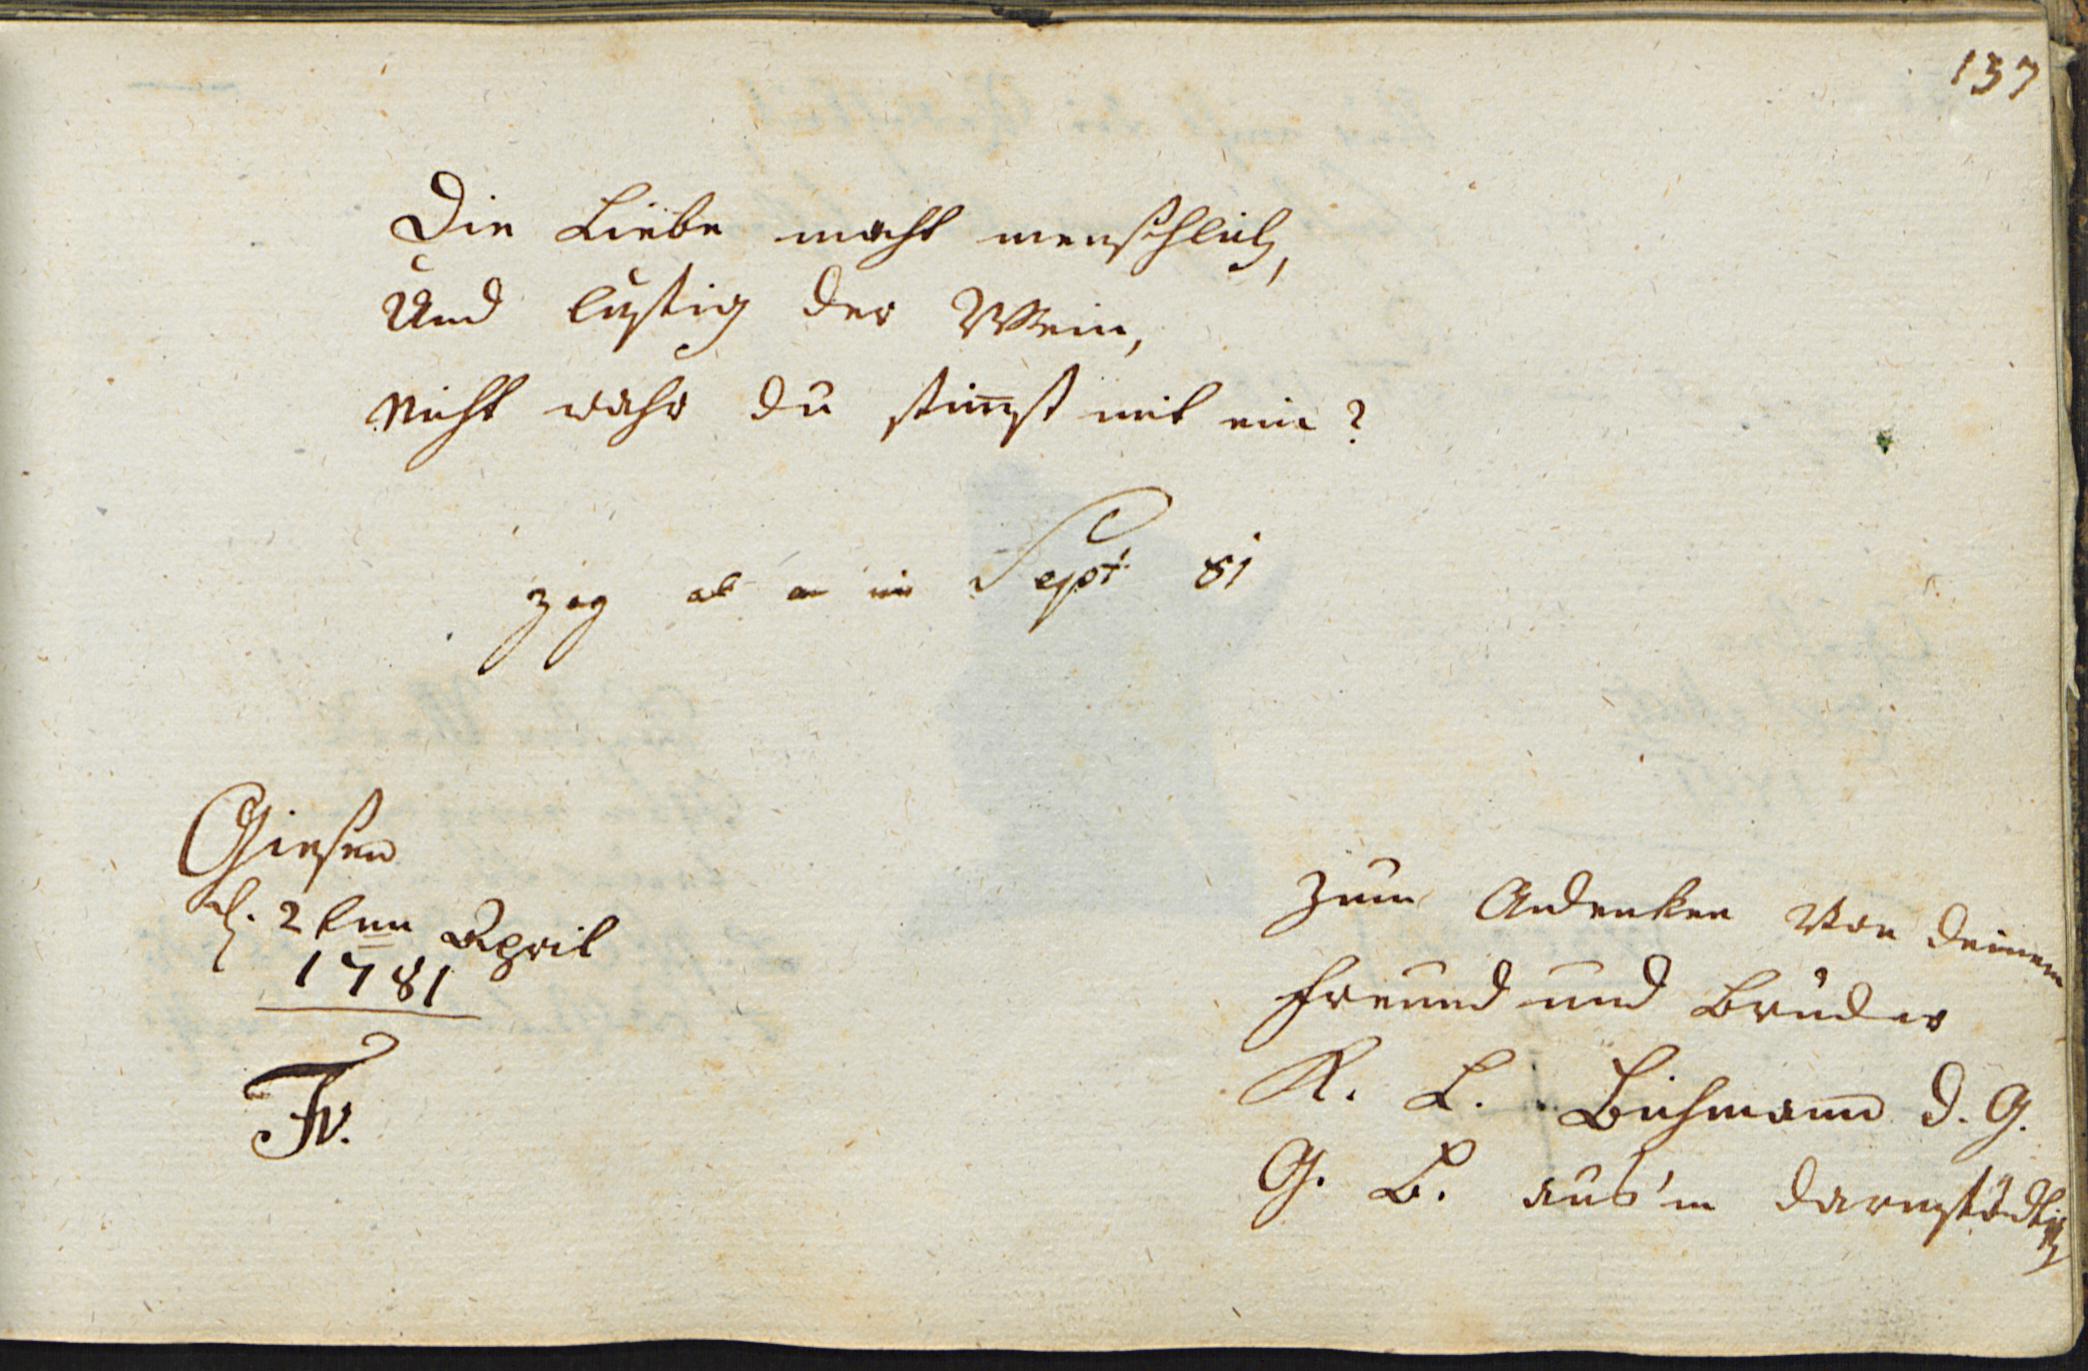 137
Die Liebe macht menschlich,
Und lustig der Wein,
Nicht wahr du stim̅st mit ein?
zog ab im Sept 81
Giesen
d. 2ten April
1781
Fv.
Zum Andenken von deinem
Freund und Bruder
K. L. Bichmann d. G.
G. B. aus'm Darmstädtis